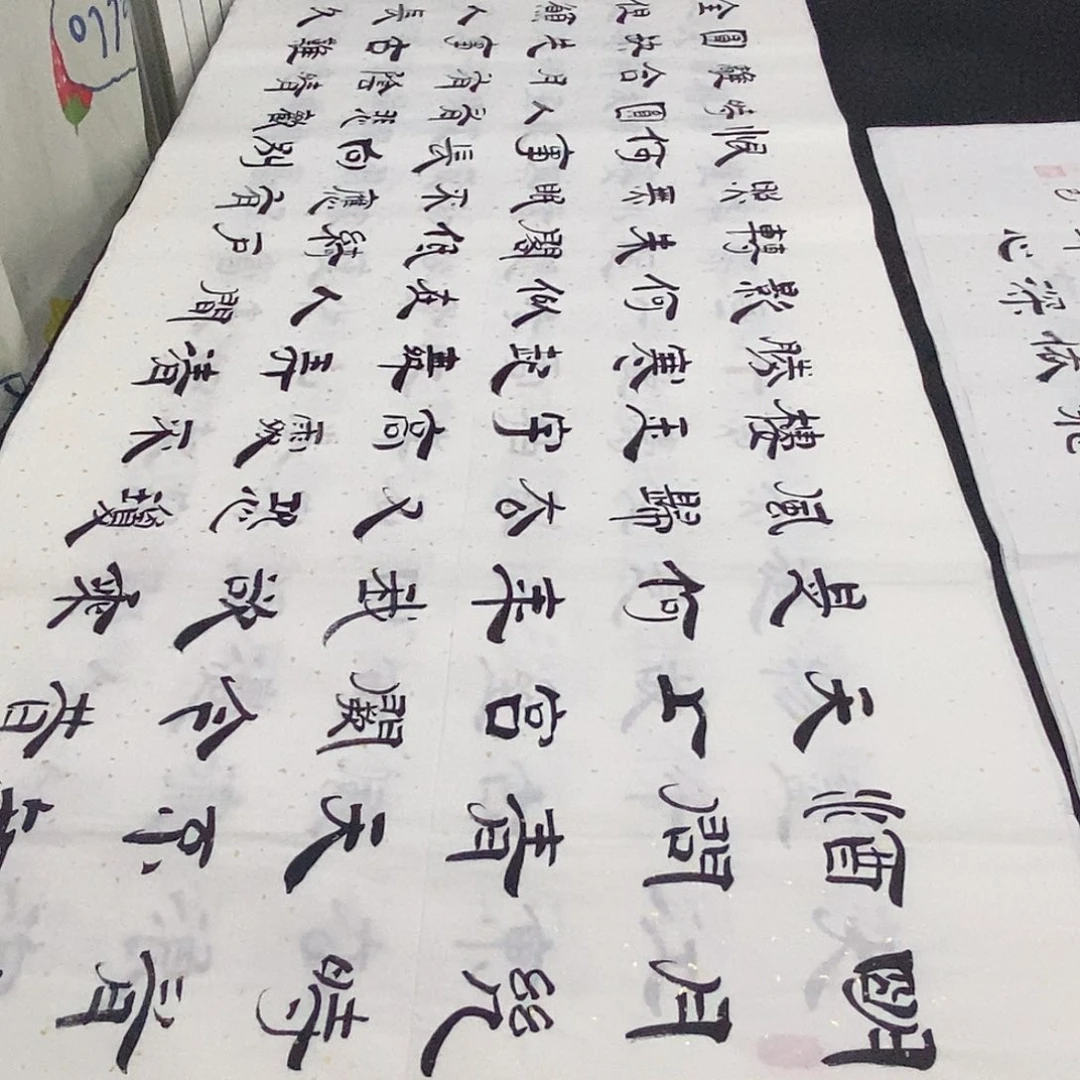 明月幾時有
酒問青天不
天上宮闕今昔
是何年我欲乘
風歸去又恐瓊
樓玉宇高處不
勝寒起舞弄清
影何似在人間
轉朱閣低綺戶
照無眠不應有
恨何事長向別
時圓人有悲歡
離合月有陰晴
圓缺此事古難
全但願人長久